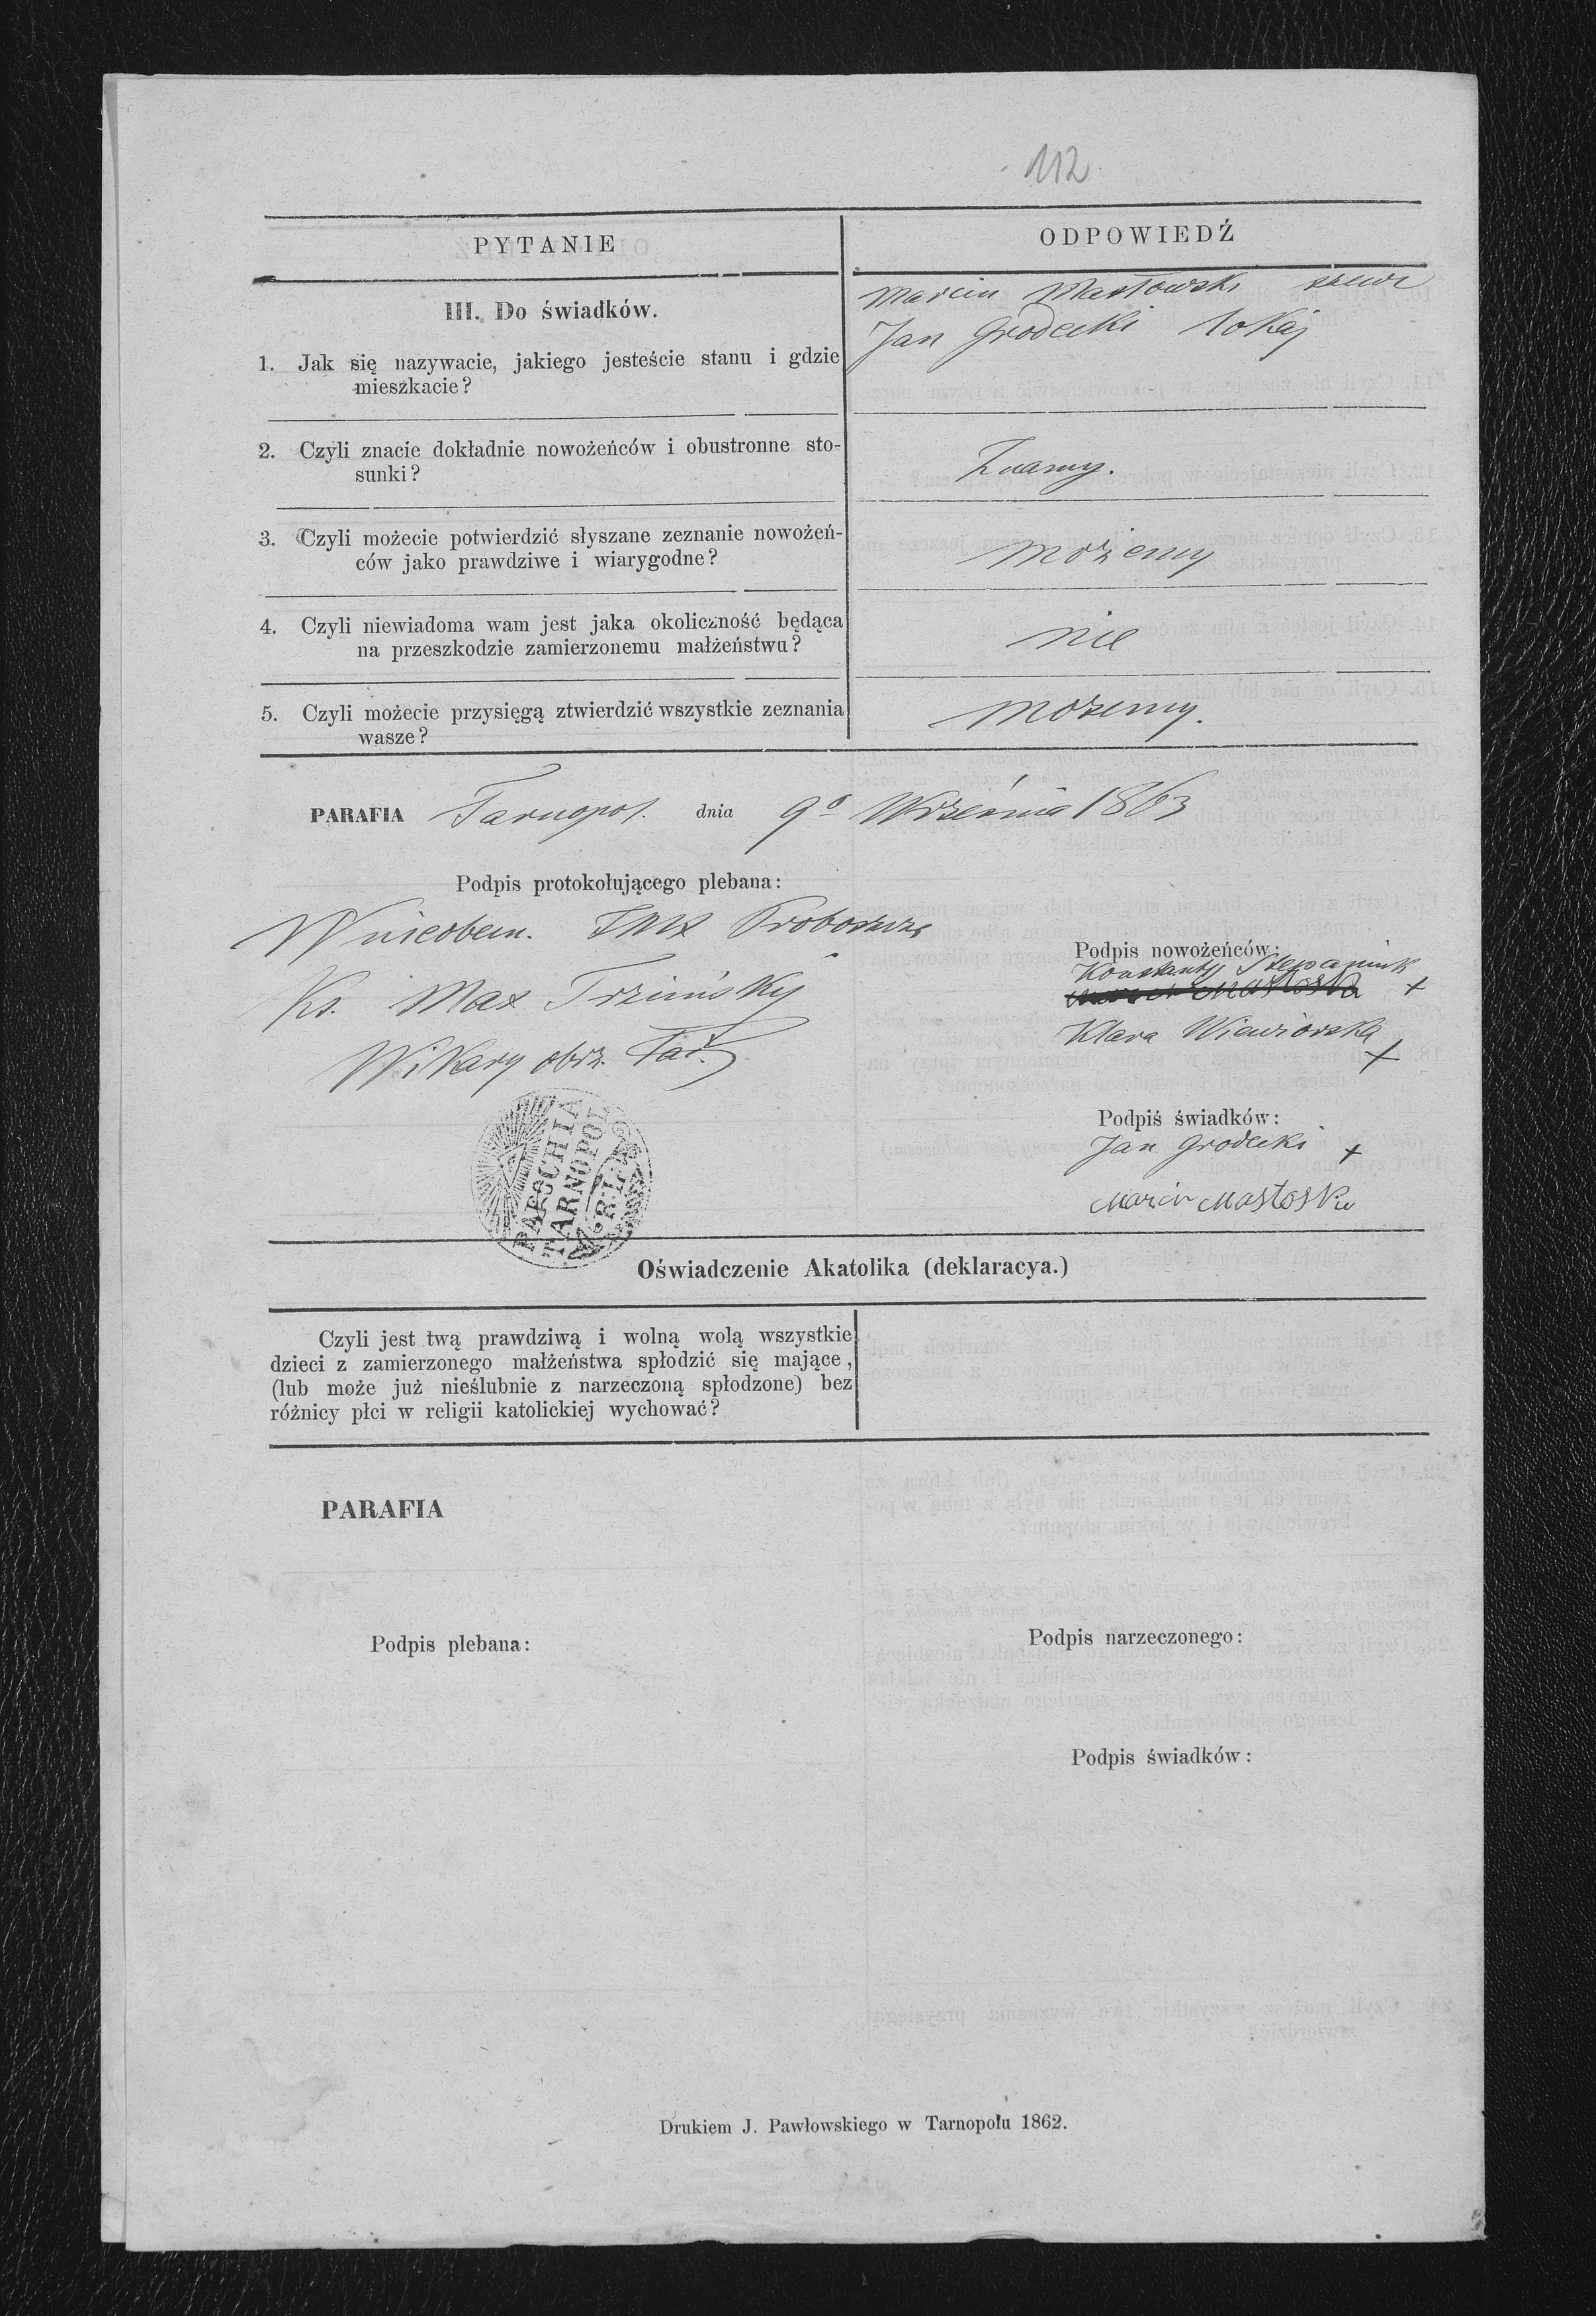 112
PYTANIE
ODPOWIEDŹ
III. Do świadków.
1. Jak się nazywacie, jakiego jesteście stanu i gdzie
mieszkacie?
Marcin Masłowski szewc
Jan Grodecki lokaj
2. Czyli znacie dokładnie nowożeńców i obustronne sto-
sunki?
Znamy.
3. Czyli możecie potwierdzić słyszane zeznanie nowożeń-
ców jako prawdziwe i wiarygodne?
możemy
4. Czyli niewiadoma wam jest jaka okoliczność będąca
na przeszkodzie zamierzonemu małżeństwu?
nie
5. Czyli możecie przysięgą ztwierdzić wszystkie zeznania
wasze?
możemy.
PARAFIA Tarnopol. dnia 9o Września 1863
Podpis protokołującego plebana:
W nieobecn. Proboszcza
Ks. Max
Wikary obrz. łać.
PAROCHIA
TARNOPOL
Podpis nowożeńców:
Konstanty Stepaniuk
+
Klara Wiewiorska
+
Podpiś świadków:
Jan Grodecki +
Marcin Mastoski
Oświadczenie Akatolika (deklaracya.)
Czyli jest twą prawdziwą i wolną wolą wszystkie
dzieci z zamierzonego małżeństwa spłodzić się mające,
(lub może już nieślubnie z narzeczoną spłodzone) bez
różnicy płci w religii katolickiej wychować?
PARAFIA
Podpis plebana:
Podpis narzeczonego:
Podpis świadków:
Drukiem J. Pawłowskiego w Tarnopolu 1862.